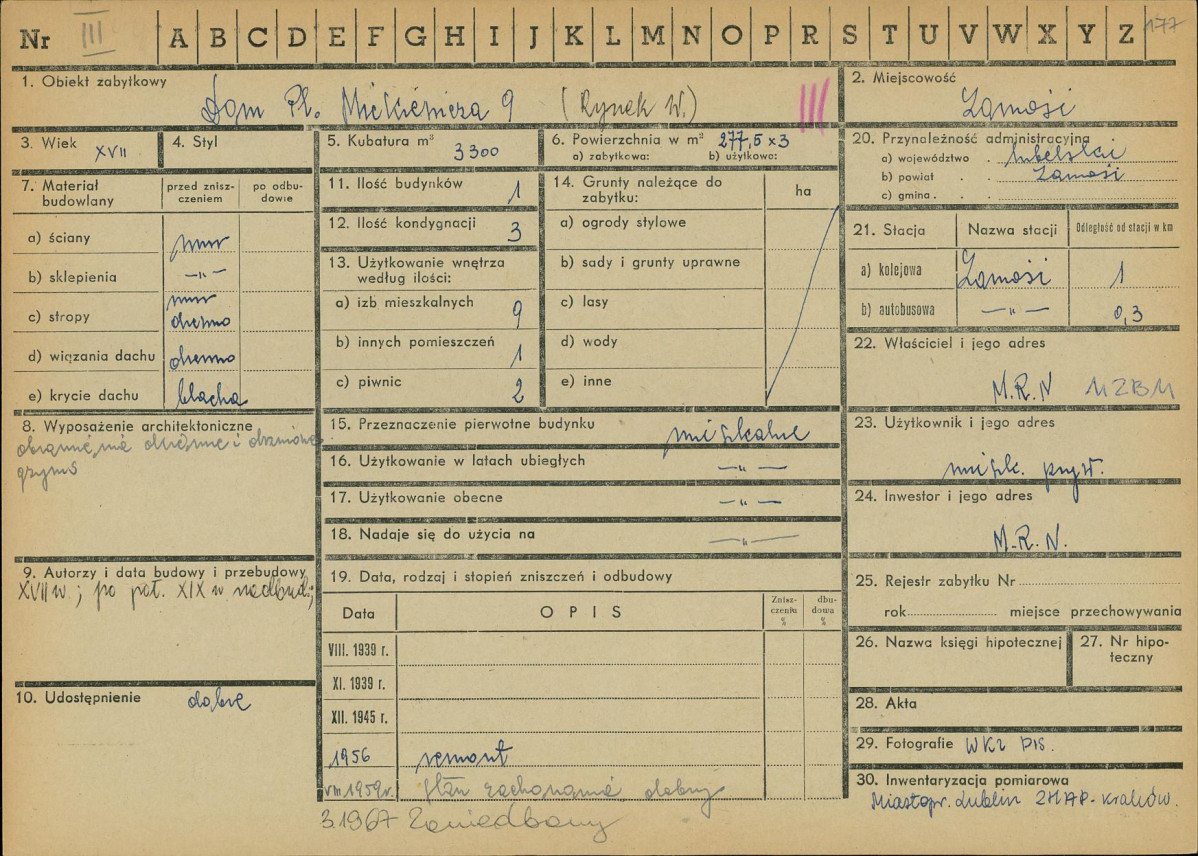 Nr III A B C D E F G H I J K L M N O P R S T U V W X Y Z 177
1. Obiekt zabytkowy
Dom Pl. Mickiewicza 9 (Rynek W.) III
2. Miejscowość
Zamość
3. Wiek XVII
4. Styl
5. Kubatura m³ 3300
6. Powierzchnia w m² 277,5 x 3
a) zabytkowa: b) użytkowa:
20. Przynależność administracyjna
a) województwo lubelskie
b) powiat Zamość
c) gmina
7. Materiał budowlany
przed zniszczeniem
po odbudowie
a) ściany mur
b) sklepienia —„—
c) stropy mur drewno
d) wiązania dachu drewno
e) krycie dachu blacha
11. Ilość budynków 1
12. Ilość kondygnacji 3
13. Użytkowanie wnętrza
według ilości:
a) izb mieszkalnych 9
b) innych pomieszczeń 1
c) piwnic 2
14. Grunty należące do
zabytku: ha
a) ogrody stylowe
b) sady i grunty uprawne
c) lasy
d) wody
e) inne
21. Stacja Nazwa stacji Odległość od stacji w km
a) kolejowa Zamość 1
b) autobusowa —„— 0,3
22. Właściciel i jego adres
M.R.N MZBM
23. Użytkownik i jego adres
mieszk. pryw.
24. Inwestor i jego adres
M.R.N.
8. Wyposażenie architektoniczne
gzyms
15. Przeznaczenie pierwotne budynku mieszkalne
16. Użytkowanie w latach ubiegłych —„—
17. Użytkowanie obecne —„—
18. Nadaje się do użycia na —„—
9. Autorzy i data budowy i przebudowy
XVII w.; po poł. XIX w nadbud.;
10. Udostępnienie dobre
19. Data, rodzaj i stopień zniszczeń i odbudowy
Data OPIS Zniszczenia % dbudowa %
VIII. 1939 r.
XI. 1939 r.
XII. 1945 r.
1956 remont
VIII 1959r. stan zachowania dobry
3.1967 Zaniedbany
25. Rejestr zabytku Nr
rok miejsce przechowywania
26. Nazwa księgi hipotecznej
27. Nr hipoteczny
28. Akta
29. Fotografie WKZ PIS.
30. Inwentaryzacja pomiarowa
Miastopr. Lublin ZHAP. Kraków.